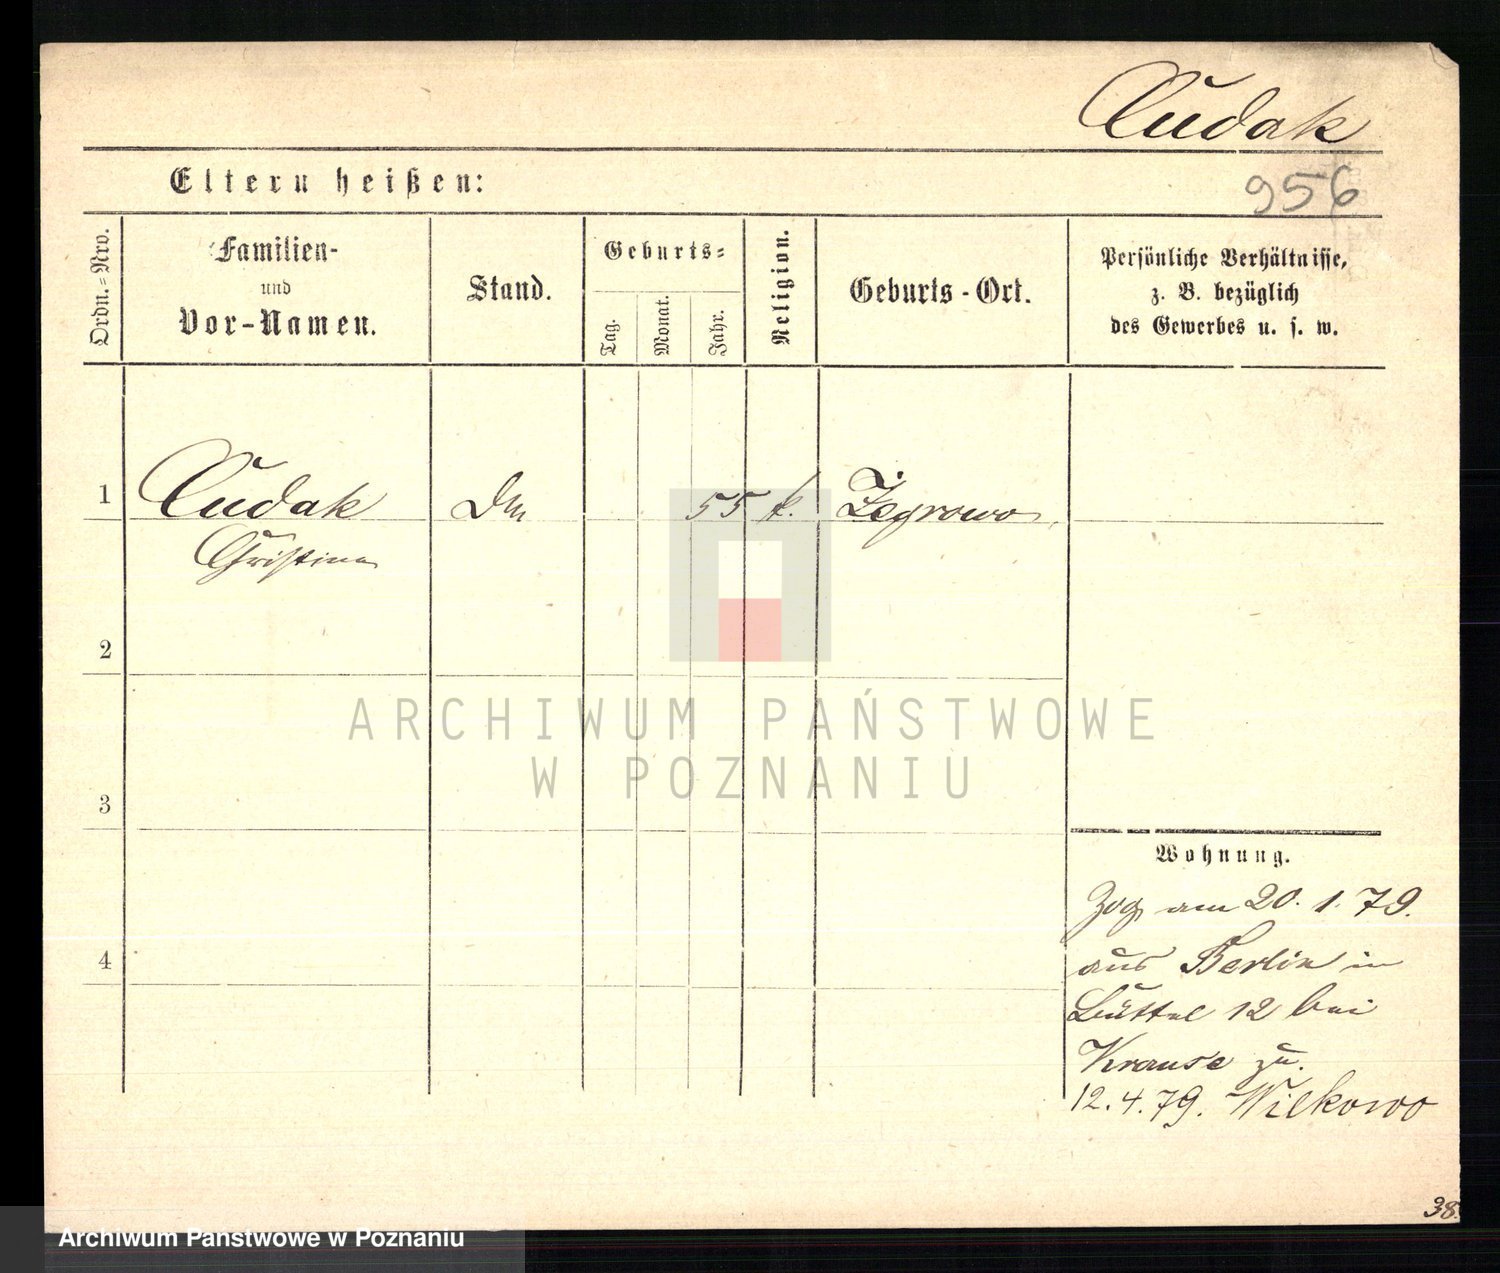 Cudak
Eltern heißen:
956
Ordn.-Nro.
Familien-
und
Vor-Namen.
Stand.
Geburts-
Tag.
Monat.
Jahr.
Religion.
Geburts-Ort.
Persönliche Verhältnisse,
z. B. bezüglich
des Gewerbes u. s. w.
1
Cudak
55
k.
Żegrowo
Christina
2
ARCHIWUM PAŃSTWOWE
W POZNANIU
3
Wohnung.
Zog am 20. 1. 79.
aus Berlin in
Büttel 12 bei
Krause zu.
12. 4. 79. Wilkowo
4
38.
Archiwum Państwowe w Poznaniu